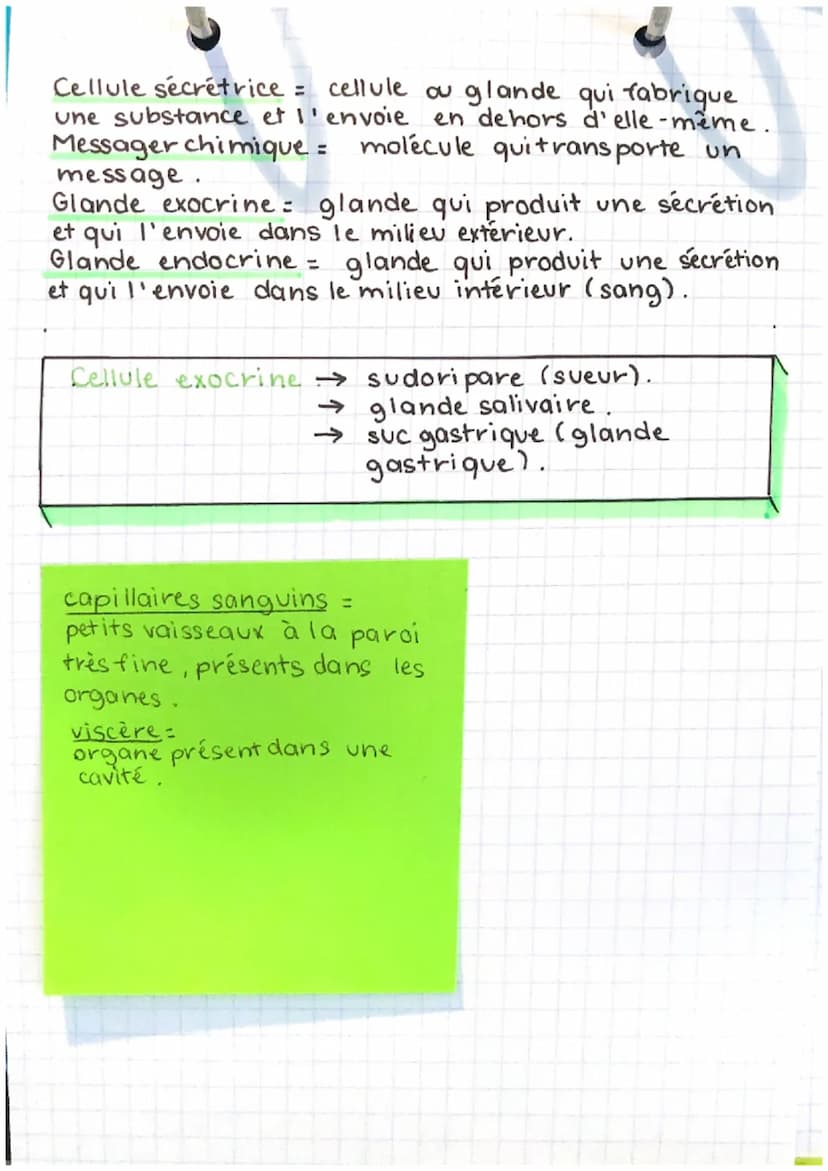 Cellule sécrétrice = cellule ou glande qui fabrique
une substance et l'envoie en dehors d'elle-même.
Messager chimique = molécule qui transporte un
message.
Glande exocrine = glande qui produit une sécrétion
et qui l'envoie dans le milieu extérieur.
Glande endocrine = glande qui produit une sécrétion
et qui l'envoie dans le milieu intérieur (sang).
Cellule exocrine → sudoripare (sueur).
→ glande salivaire.
→ suc gastrique (glande
gastrique).
capillaires sanguins =
petits vaisseaux à la paroi
très fine, présents dans les
organes.
viscère =
organe présent dans une
cavité.